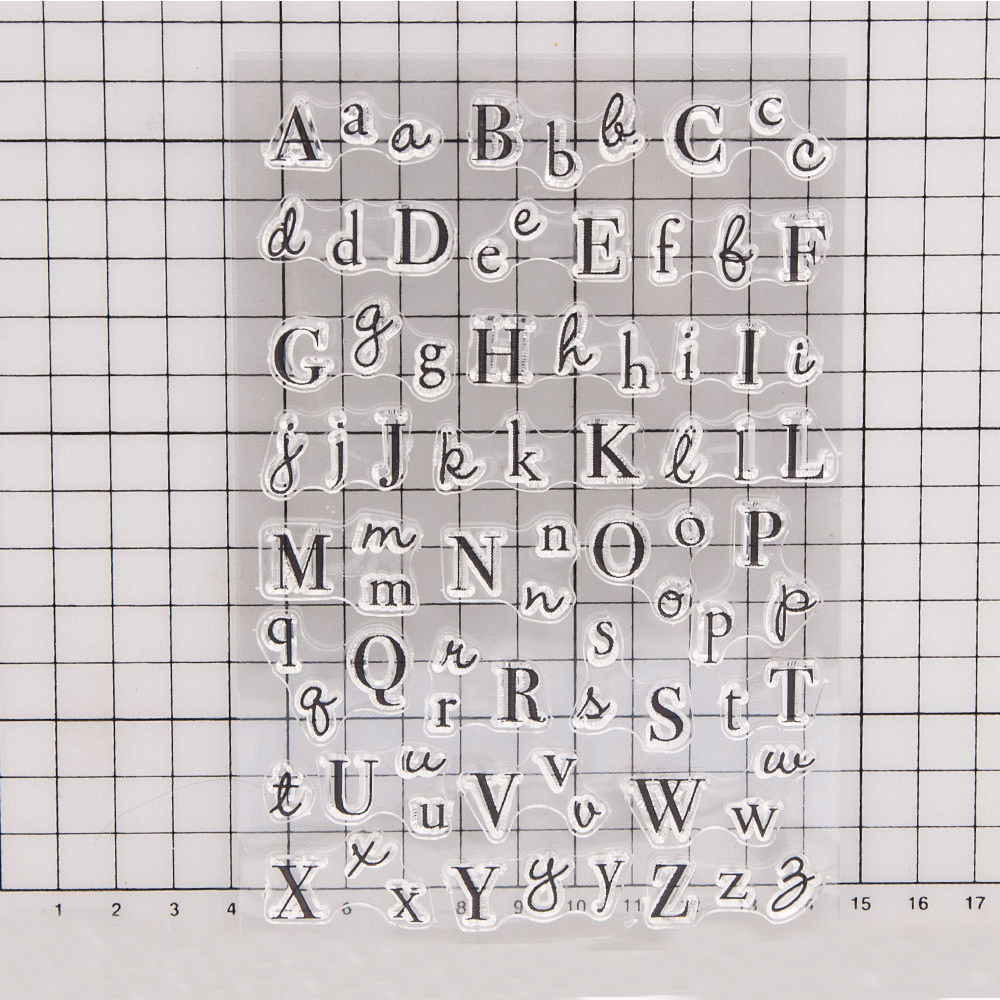 A a a B b b C c c
d d D e e E f f F
G g g H h h i I i
j j J k k K l l L
M m m N n n O o o P p p
q q Q r r R s s S t T
t U u u V v v W w w
X x x Y y y Z z z
1 2 3 4 6 8 9 10 11 13 15 16 17